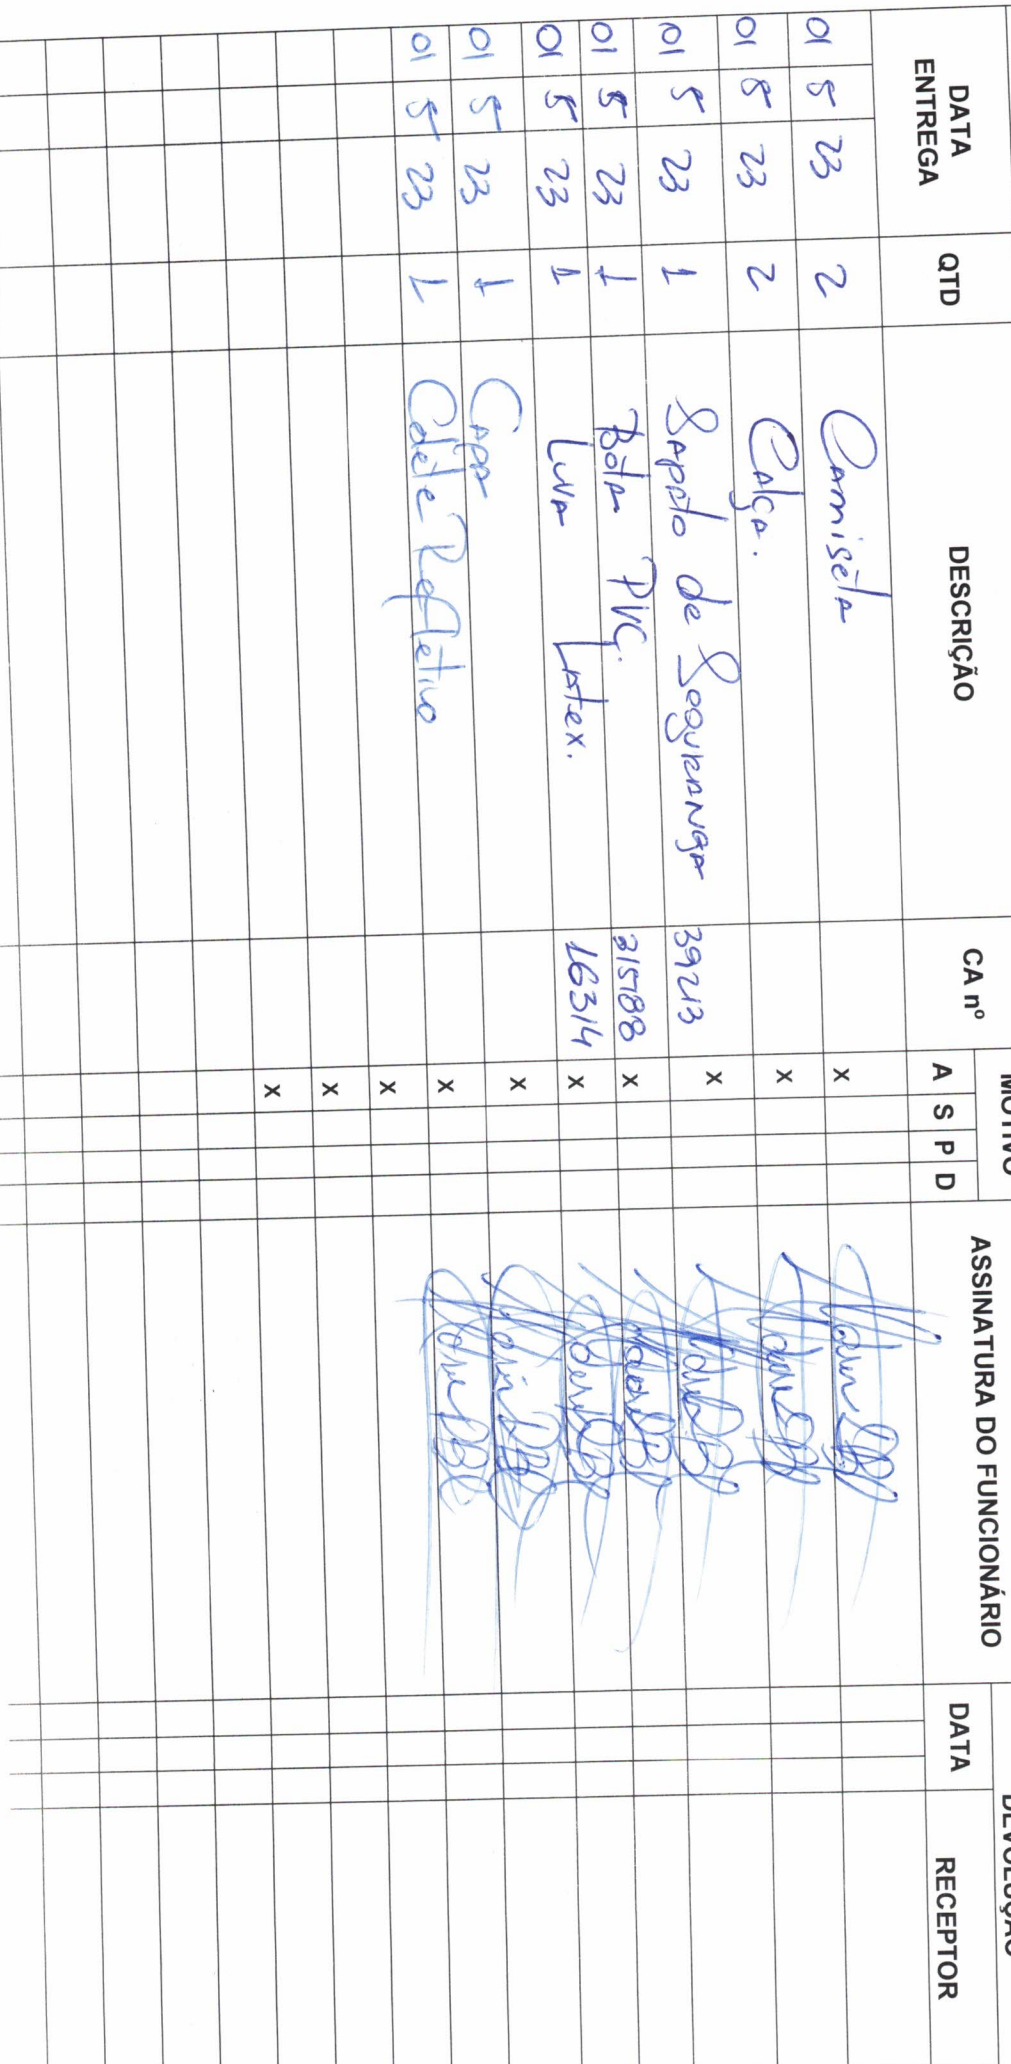 MOTIVO DEVOLUÇÃO
DATA ENTREGA QTD DESCRIÇÃO CA nº A S P D ASSINATURA DO FUNCIONÁRIO DATA RECEPTOR
01 5 23 2 Camiseta x
01 5 23 2 Calça. x
01 5 23 1 Sapato de Segurança 39213 x
01 5 23 1 Bota PVC. x
01 5 23 1 Luva Latex. 16314 x
01 5 23 1 Capa x
01 5 23 1 Colete Refletivo x
x
x
x